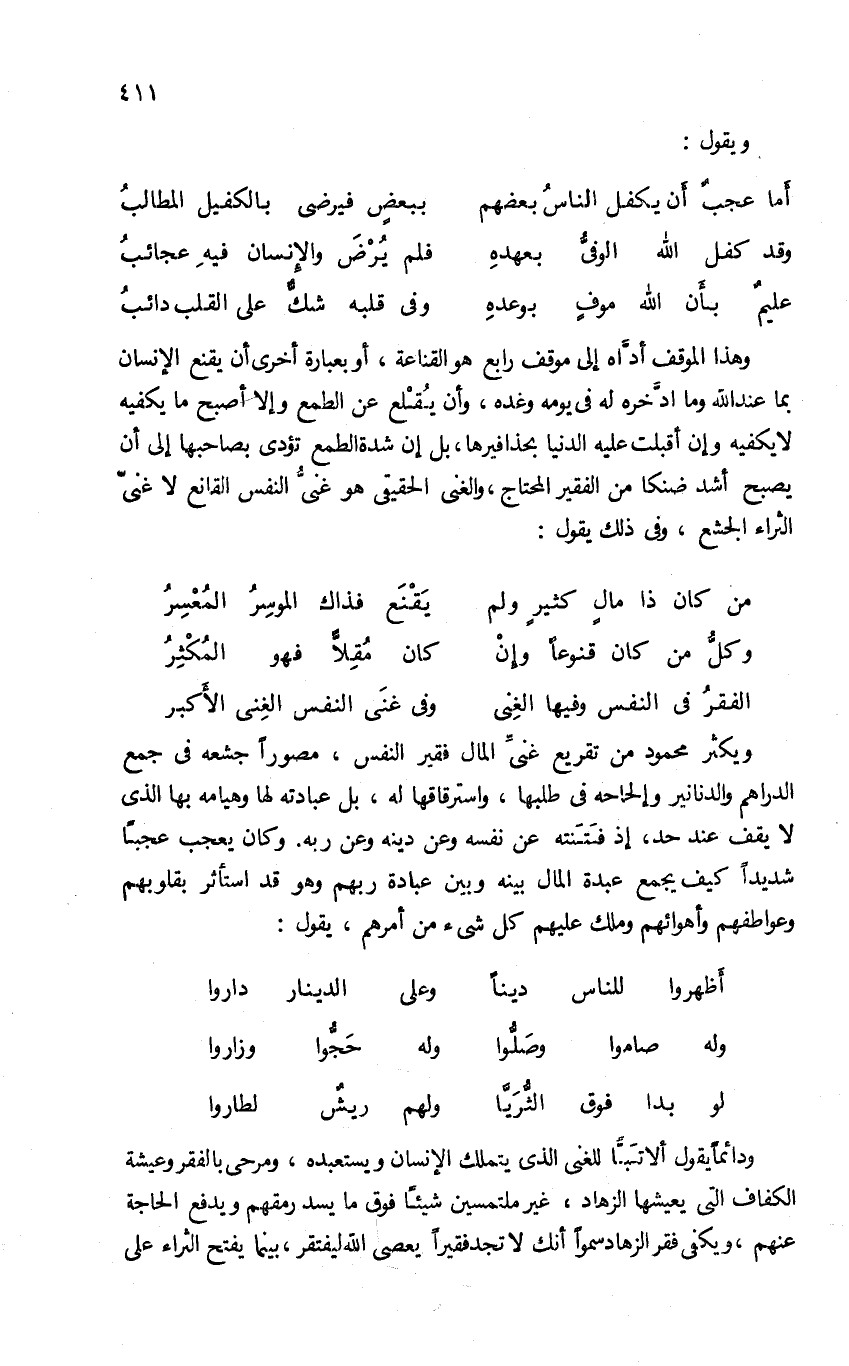 ٤١١
ويقول :
أَما عجبٌ أَن يكفل الناسُ بعضهم ببعضٍ فيرضى بالكفيل المطالبُ
وقد كفل الله الوفىُّ بعهدهِ فلم يُرْضَ والإِنسان فيهِ عجائبُ
عليمٌ بأَن الله موفٍ بوعدهِ وفى قلبه شكٌّ على القلب دائبُ
وهذا الموقف أدَّاه إلى موقف رابع هو القناعة ، أو بعبارة أخرى أن يقنع الإنسان
بما عند الله وما ادَّخره له فى يومه وغده ، وأن يُقْلع عن الطمع وإلا أصبح ما يكفيه
لا يكفيه وإن أقبلت عليه الدنيا بحذافيرها ، بل إن شدة الطمع تؤدى بصاحبها إلى أن
يصبح أشد ضنكا من الفقير المحتاج ، والغنى الحقيقى هو غنىُّ النفس القانع لا غنىّ
الثراء الجشع ، وفى ذلك يقول :
من كان ذا مالٍ كثيرٍ ولم يَقْنَع فذاك الموسِرُ المُعْسِرُ
وكلُّ من كان قنوعاً وإِنْ كان مُقِلاًّ فهو المُكْثِرُ
الفقرُ فى النفس وفيها الغِنى وفى غنَى النفس الغِنى الأَكبر
ويكثر محمود من تقريع غنىِّ المال فقير النفس ، مصوراً جشعه فى جمع
الدراهم والدنانير وإلحاحه فى طلبها ، واسترقاقها له ، بل عبادته لها وهيامه بها الذى
لا يقف عند حد ، إذ فَتَنته عن نفسه وعن دينه وعن ربه. وكان يعجب عجبًا
شديداً كيف يجمع عبدة المال بينه وبين عبادة ربهم وهو قد استأثر بقلوبهم
وعواطفهم وأهوائهم وملك عليهم كل شىء من أمرهم ، يقول :
أَظهروا للناس ديناً وعلى الدينار داروا
وله صاموا وصَلُّوا وله حَجُّوا وزاروا
لو بدا فوق الثُّرَيَّا ولهم ريشٌ لطاروا
ودائماً يقول ألا تَبًّا للغنى الذى يتملك الإنسان ويستعبده ، ومرحى بالفقر وعيشة
الكفاف التى يعيشها الزهاد ، غير ملتمسين شيئًا فوق ما يسد رمقهم ويدفع الحاجة
عنهم ، ويكفى فقر الزهاد سمواً أنك لا تجد فقيراً يعصى الله ليفتقر ، بينما يفتح الثراء على